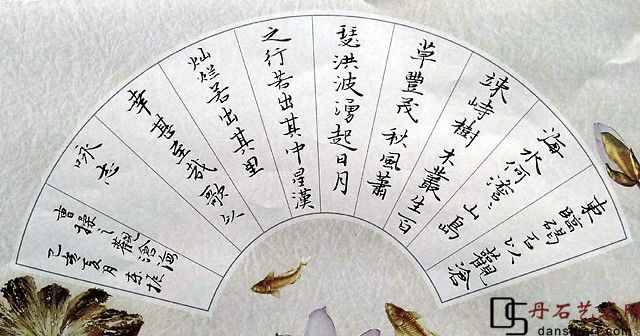 東臨碣石以觀滄
海水何澹〻山島
竦峙樹木叢生百
草豐茂秋風蕭
瑟洪波湧起日月
之行若出其中星漢
灿烂若出其里
幸甚至哉歌以
咏志
曹操 觀滄海
己亥夏月
DS
丹石艺